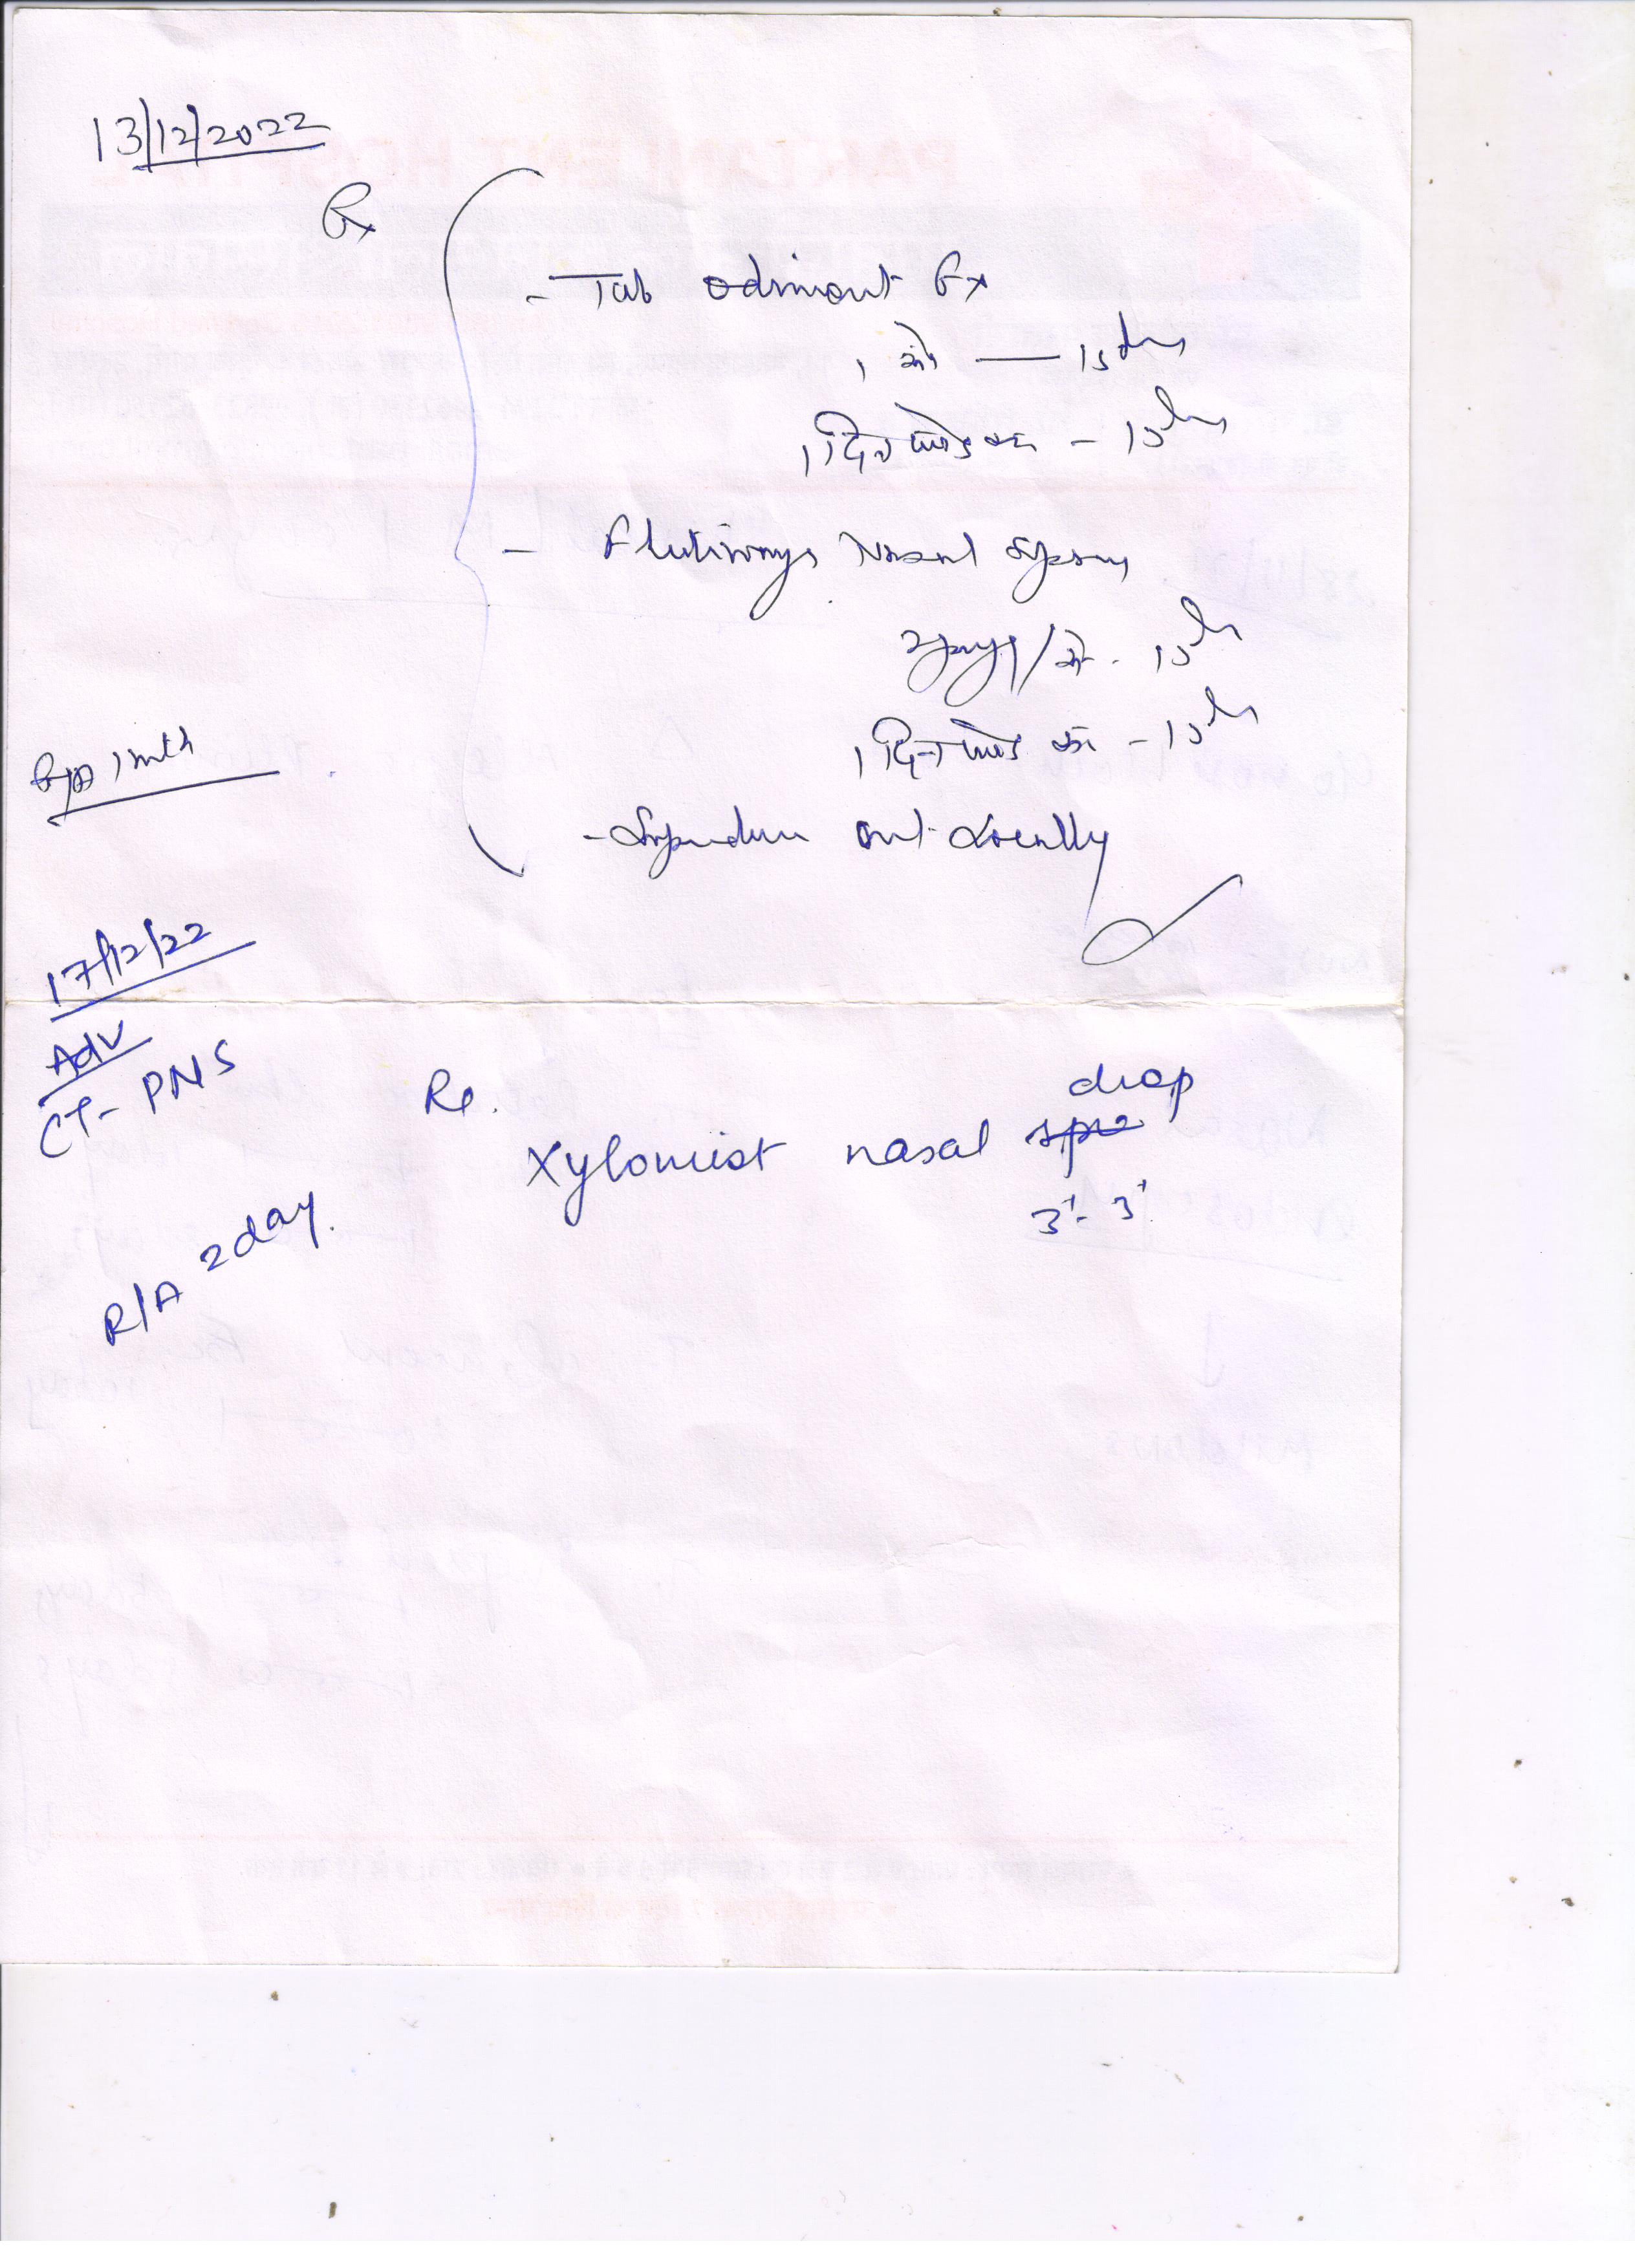 13/12/2022
Rx
- Tab odimont Fx
1 रोज — 15 days
1 दिन छोड़ कर - 10 days
- Flutiways Nasal Spray
/ रोज - 10 days
1 दिन छोड़ कर - 10 days
- ont Locally
R/A 1 mth
17/12/22
Adv
CT- PNS
Rx.
drop
Xylomist nasal
3'- 3'
R/A 2 day.